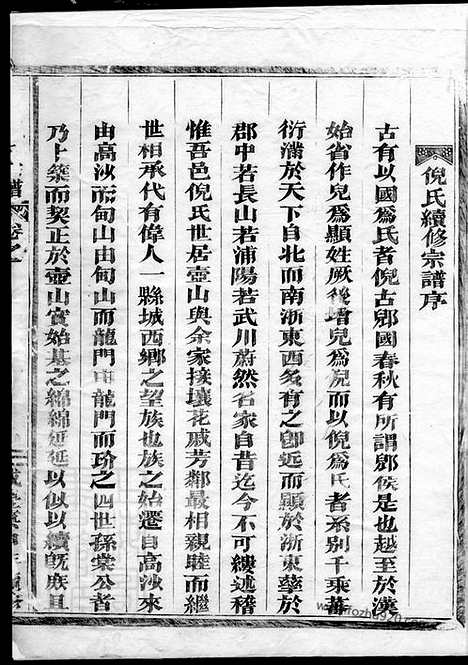 倪氏續修宗譜序
古有以國爲氏者倪古郳國春秋有所謂郳侯是也越至於漢
始省作兒爲顯姓厥後增兒爲倪而以倪爲氏者系別千乘蕃
衍滿於天下自北而南浙東西多有之卽近而顯於浙東蘖於
郡中若長山若浦陽若武川蔚然名家自昔迄今不可縷述稽
惟吾邑倪氏世居壺山與余家接壤花戚芳鄰最相親睦而繼
世相承代有偉人一縣城西鄉之望族也族之始遷自高沙來
由高沙而甸山由甸山而龍門由龍門而玠之四世孫棠公者
乃卜築而契正於壺山實始基之綿綿延延以似以續旣庶且
譜 卷之